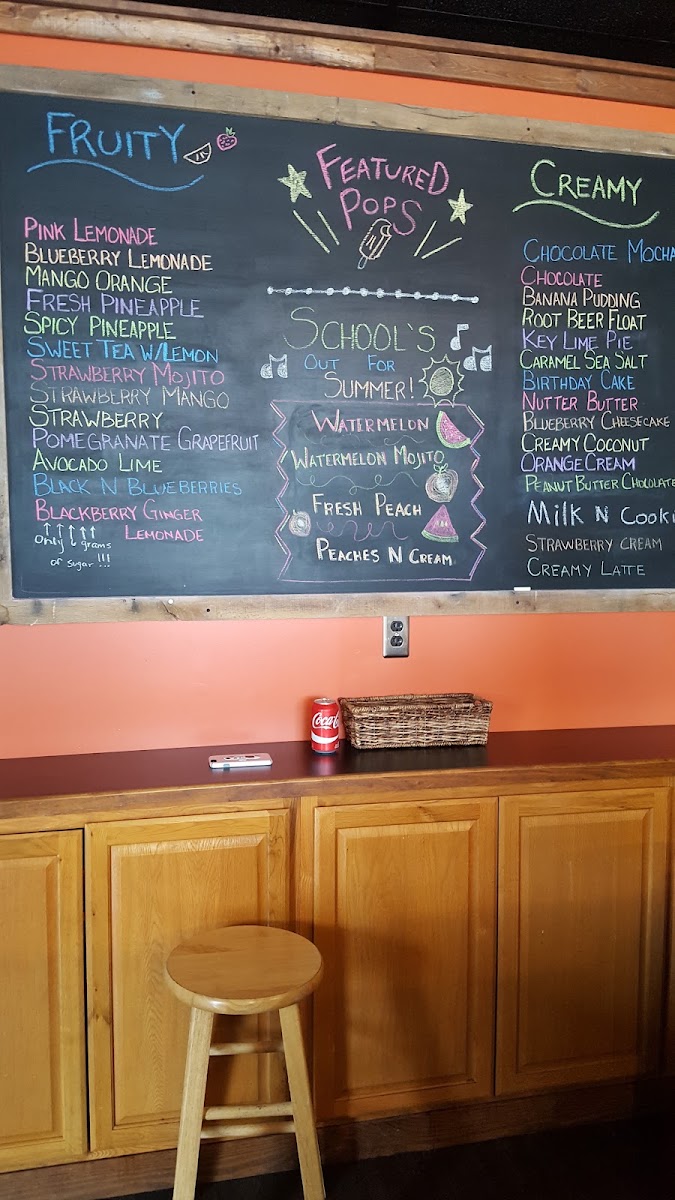 FRUITY
PINK LEMONADE
BLUEBERRY LEMONADE
MANGO ORANGE
FRESH PINEAPPLE
SPICY PINEAPPLE
SWEET TEA W/LEMON
STRAWBERRY MOJITO
STRAWBERRY MANGO
STRAWBERRY
POMEGRANATE GRAPEFRUIT
AVOCADO LIME
BLACK N BLUEBERRIES
BLACKBERRY GINGER
LEMONADE
only 6 grams
of sugar!!!
FEATURED
POPS
SCHOOL'S
OUT FOR
SUMMER!
WATERMELON
WATERMELON MOJITO
FRESH PEACH
PEACHES N CREAM
CREAMY
CHOCOLATE MOCHA
CHOCOLATE
BANANA PUDDING
ROOT BEER FLOAT
KEY LIME PIE
CARAMEL SEA SALT
BIRTHDAY CAKE
NUTTER BUTTER
BLUEBERRY CHEESECAKE
CREAMY COCONUT
ORANGE CREAM
PEANUT BUTTER CHOCOLATE
MILK N COOKI
STRAWBERRY CREAM
CREAMY LATTE
Coca-C